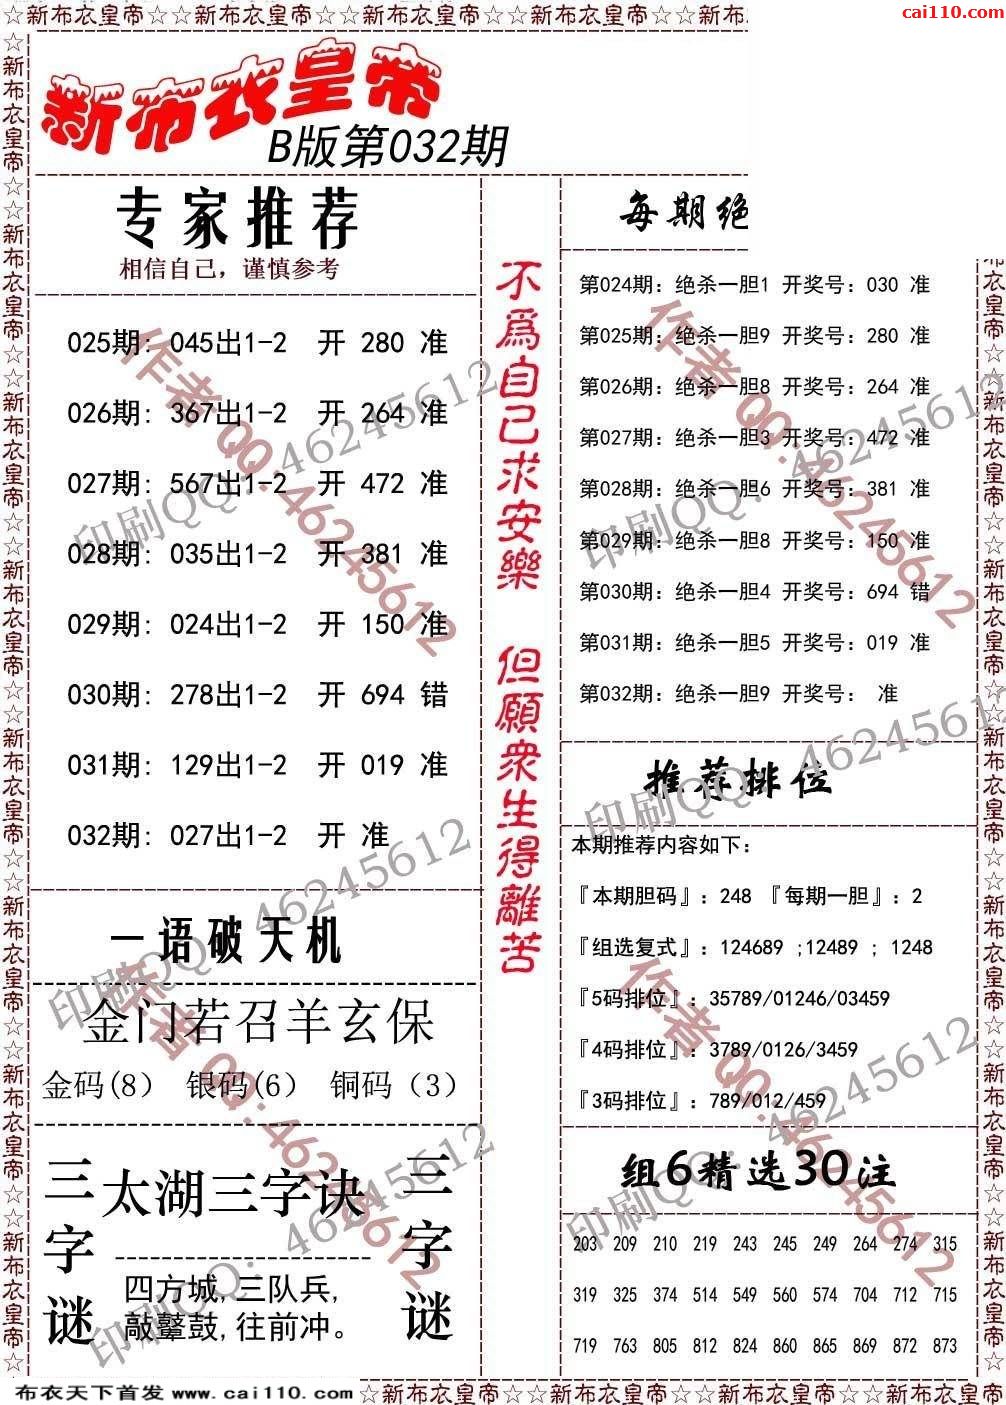 ☆新布衣皇帝☆☆新布衣皇帝☆☆新布衣皇帝☆☆新布衣皇帝☆☆新布
cai110.com
新布衣皇帝
B版第032期
专家推荐
相信自己，谨慎参考
025期: 045出1-2 开 280 准
026期: 367出1-2 开 264 准
027期: 567出1-2 开 472 准
028期: 035出1-2 开 381 准
029期: 024出1-2 开 150 准
030期: 278出1-2 开 694 错
031期: 129出1-2 开 019 准
032期: 027出1-2 开 准
一语破天机
金门若召羊玄保
金码(8) 银码(6) 铜码（3）
三字谜
太湖三字诀
四方城,三队兵,
敲鼙鼓,往前冲。
三字谜
不為自己求安樂 但願衆生得離苦
每期绝
第024期: 绝杀一胆1 开奖号: 030 准
第025期: 绝杀一胆9 开奖号: 280 准
第026期: 绝杀一胆8 开奖号: 264 准
第027期: 绝杀一胆3 开奖号: 472 准
第028期: 绝杀一胆6 开奖号: 381 准
第029期: 绝杀一胆8 开奖号: 150 准
第030期: 绝杀一胆4 开奖号: 694 错
第031期: 绝杀一胆5 开奖号: 019 准
第032期: 绝杀一胆9 开奖号: 准
推荐排位
本期推荐内容如下:
『本期胆码』: 248 『每期一胆』: 2
『组选复式』: 124689 ;12489 ; 1248
『5码排位』: 35789/01246/03459
『4码排位』: 3789/0126/3459
『3码排位』: 789/012/459
组6精选30注
203 209 210 219 243 245 249 264 274 315
319 325 374 514 549 560 574 704 712 715
719 763 805 812 824 860 865 869 872 873
作者QQ:46245612
印刷QQ: 46245612
作者QQ:46245612
印刷QQ: 46245612
印刷QQ: 46245612
印刷QQ: 46245612
作者QQ:46245612
作者QQ:46245612
印刷QQ: 46245612
印刷QQ: 46245612
布衣天下首发 www.cai110.com
☆新布衣皇帝☆☆新布衣皇帝☆☆新布衣皇帝☆☆新布衣皇帝☆